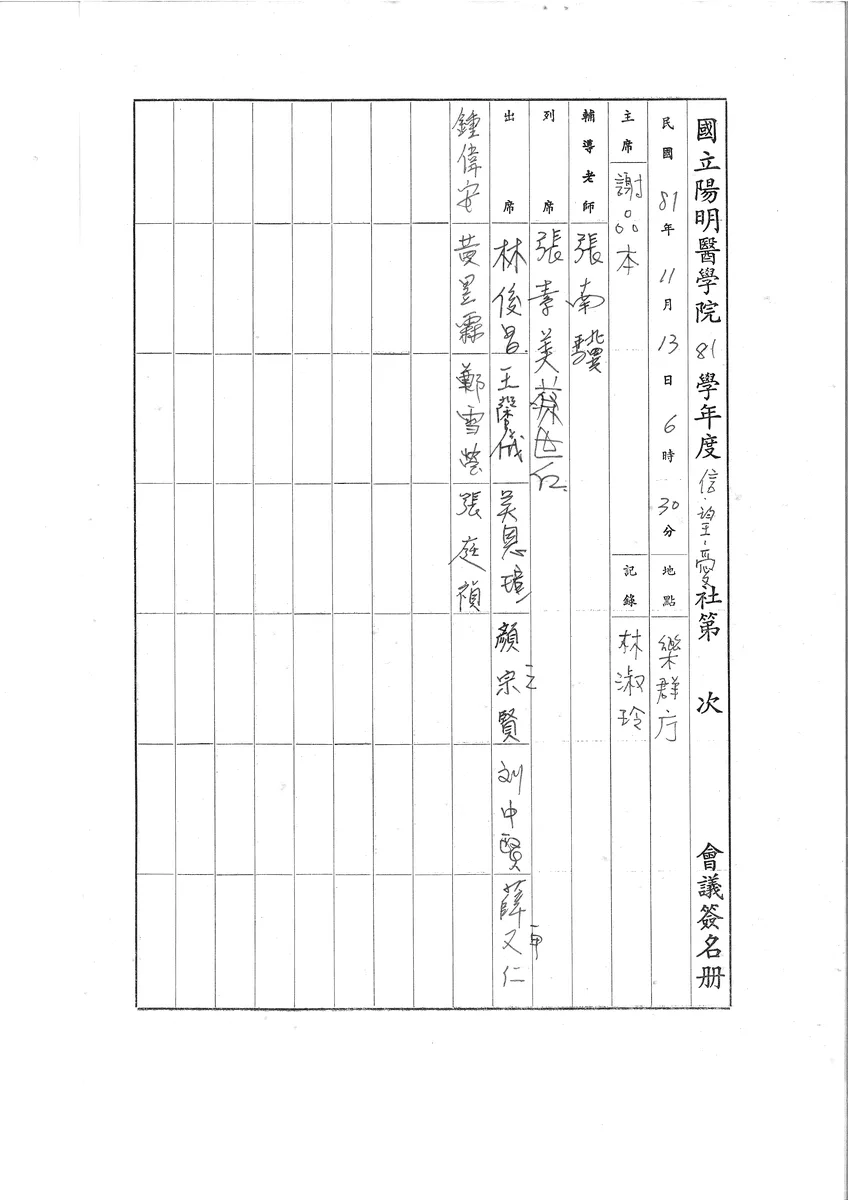 國立陽明醫學院 81 學年度 信.望.愛 社第 次 會議簽名册
民國 81 年 11 月 13 日 6 時 30 分 地點 樂群庁
主席 謝品本 記錄 林淑玲
輔導老師 張南驥
列席 張素美
出席 林俊昌 王馨儀 吳恩瑋 顏宗賢 刘中賢 薛又仁
鍾偉安 黃昱霖 鄭雪瑩 張庭禎